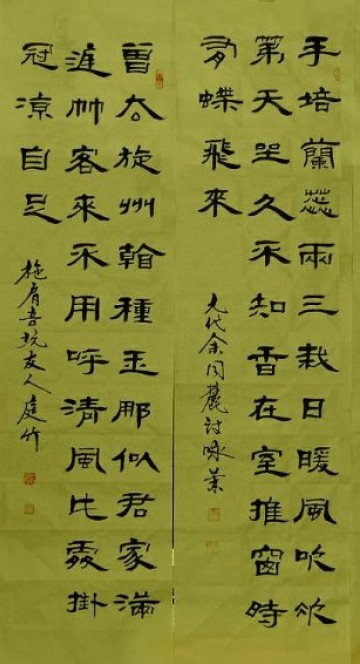 手培蘭蕊兩三栽日暖風吹次
第天坐久不知香在室推窗時
有蝶飛來
元代余同麓詩咏蘭
曾去旋州翰種玉那似君家滿
庭竹客來不用呼清風此處掛
冠涼自足
施肩吾玩友人庭竹